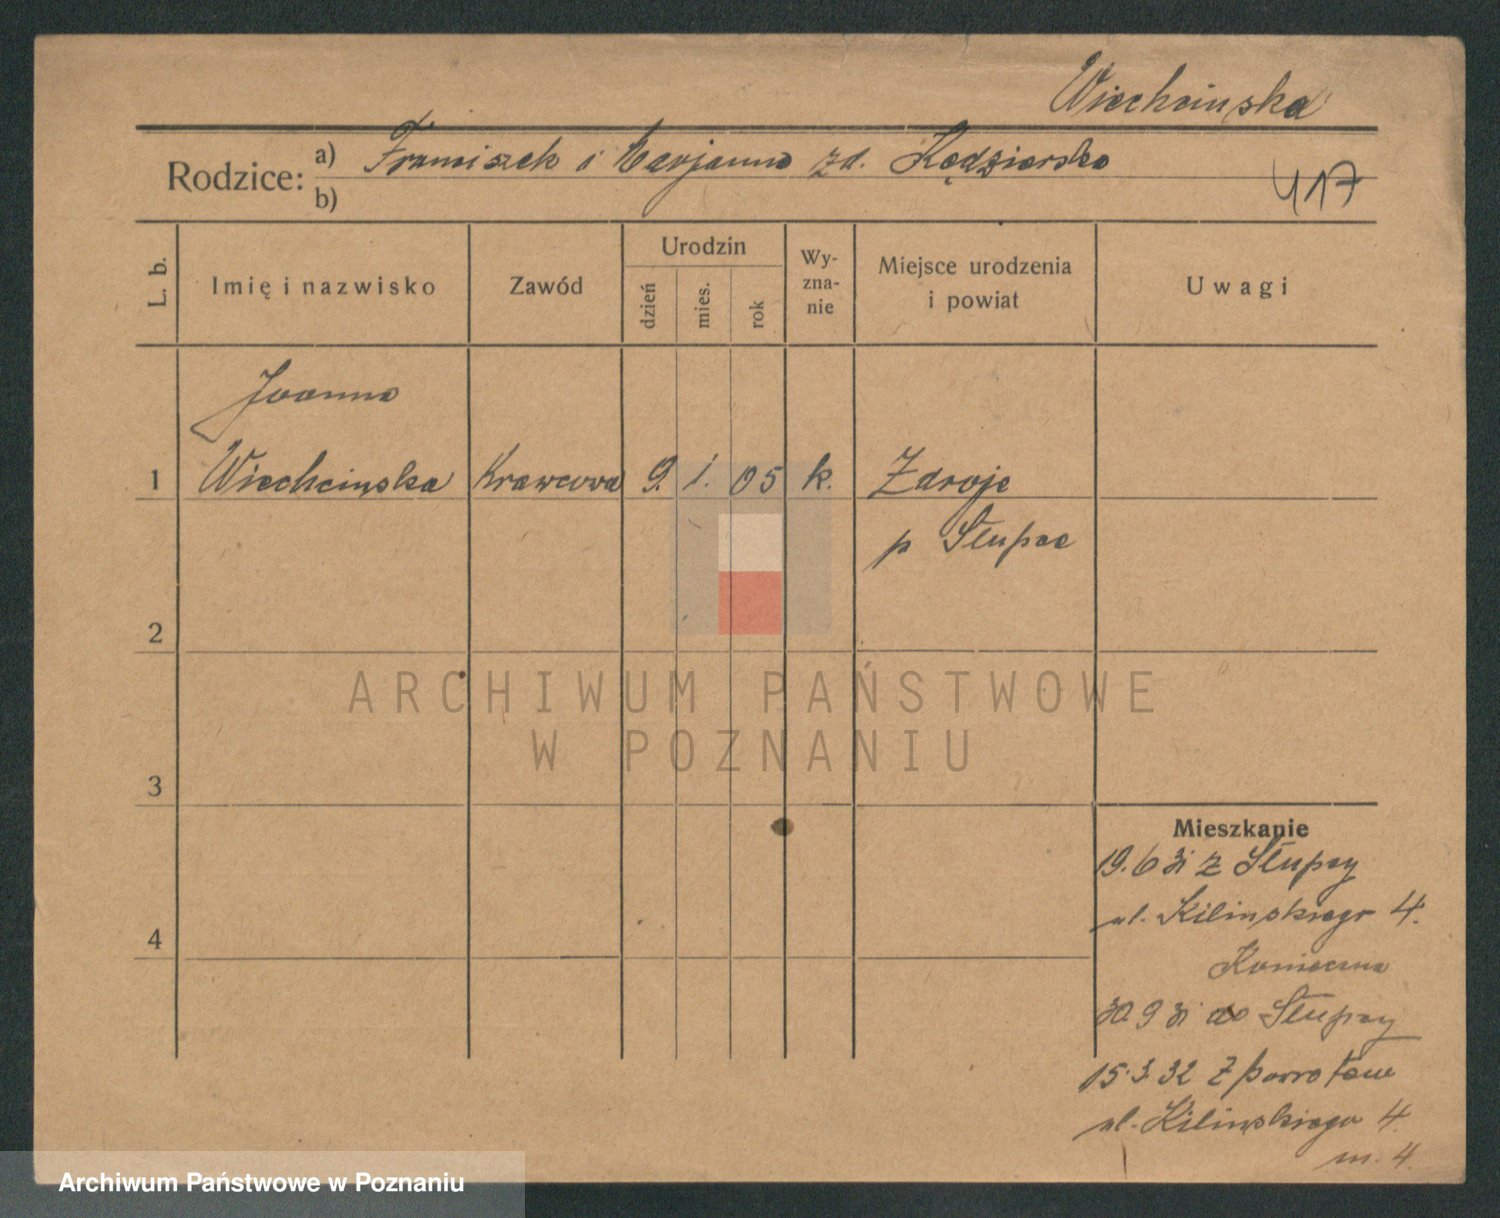 Wiechcinska
Rodzice: a) Franciszek i Marjanna zd. Kędzierska
b)
417
L. b.
Imię i nazwisko
Zawód
Urodzin
dzień
mies.
rok
Wy-
zna-
nie
Miejsce urodzenia
i powiat
Uwagi
Joanna
1 Wiechcińska Krawcowa 9. 1. 05 k. Zdroje
p Słupce
2
ARCHIWUM PAŃSTWOWE
W POZNANIU
3
4
Mieszkanie
19.6 31 z Słupcy
ul. Kilinskiego 4.
Konieczna
30.9 31 do Słupcy
15.3.32 z powrotem
ul. Kilinskiego 4.
m. 4.
Archiwum Państwowe w Poznaniu